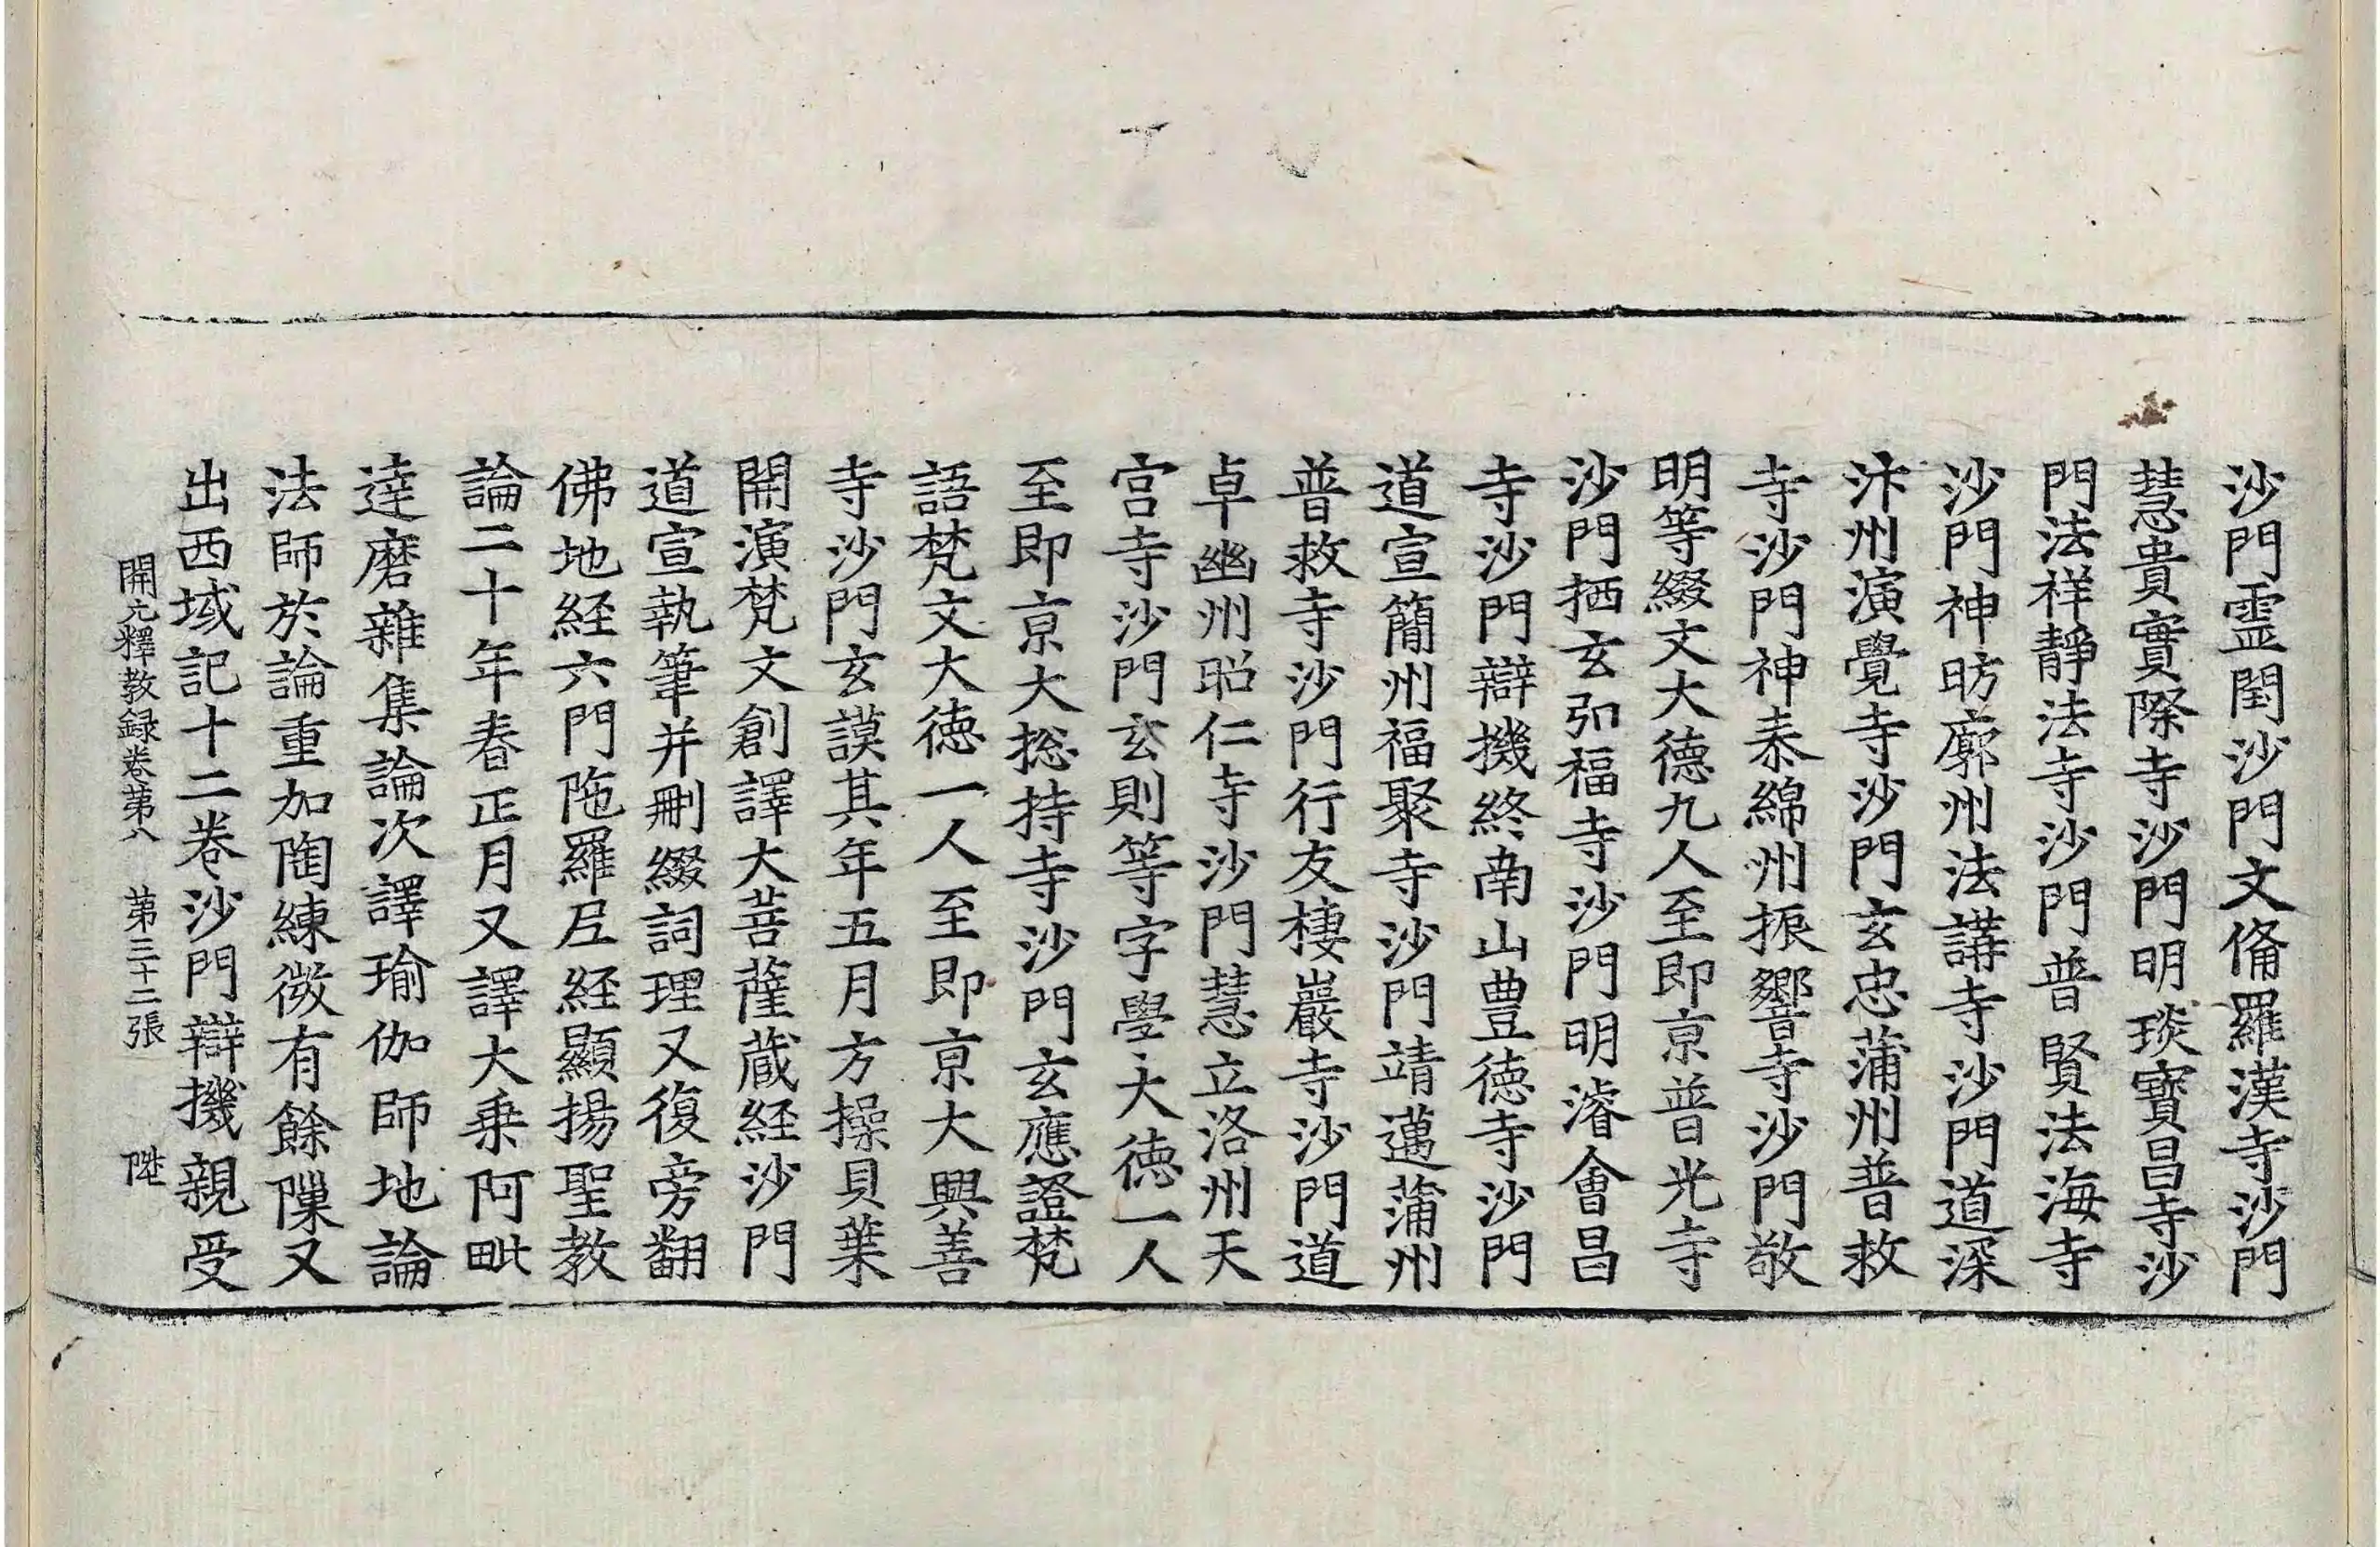 沙門靈閏沙門文俻羅漢寺沙門
慧貴實際寺沙門明琰寶昌寺沙
門法祥静法寺沙門普賢法海寺
沙門神昉廓州法講寺沙門道深
汴州演覺寺沙門玄忠蒲州普救
寺沙門神泰綿州振響寺沙門敬
明等綴文大德九人至即京普光寺
沙門栖玄弘福寺沙門明濬會昌
寺沙門辯機終南山豊德寺沙門
道宣簡州福聚寺沙門靖邁蒲州
普救寺沙門行友棲巖寺沙門道
卓幽州昭仁寺沙門慧立洛州天
宫寺沙門玄則等字學大德一人
至即京大捴持寺沙門玄應證梵
語梵文大德一人至即京大興善
寺沙門玄謨其年五月方操貝葉
開演梵文創譯大菩薩蔵経沙門
道宣執筆并刪綴詞理又復旁翻
佛地経六門陁羅尼経顯揚聖教
論二十年春正月又譯大乗阿毗
達磨雜集論次譯瑜伽師地論
法師於論重加陶練微有餘隟又
出西域記十二卷沙門辯機親受
開元釋教録卷第八 第三十二張 陞